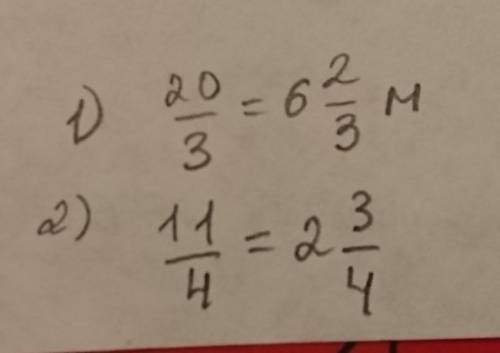 1) 20/3 = 6 2/3 м
2) 11/4 = 2 3/4